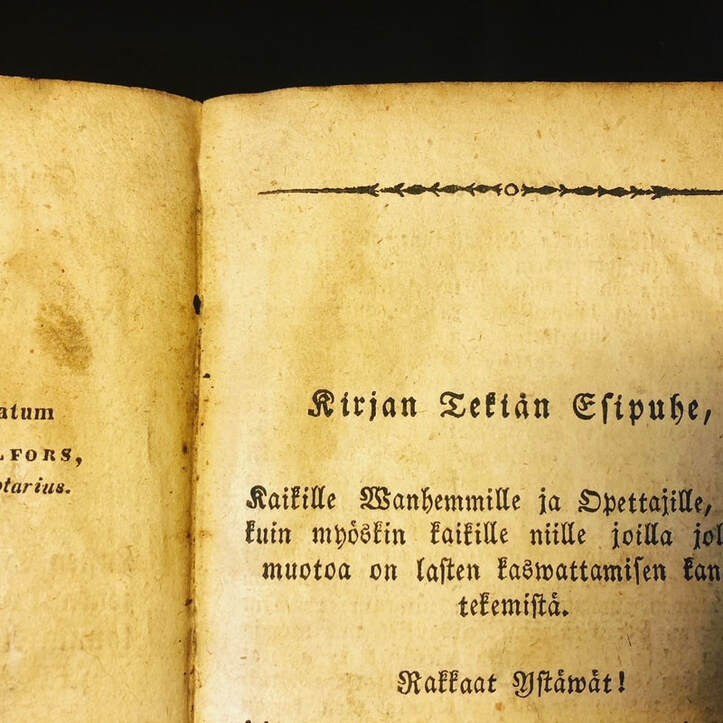 atum
LFORS,
otarius.
Kirjan Tekiän Esipuhe,
Kaikille Wanhemmille ja Opettajille,
kuin myöskin kaikille niille joilla jol
muotoa on lasten kaswattamisen kan
tekemistä.
Rakkaat Ystäwät!